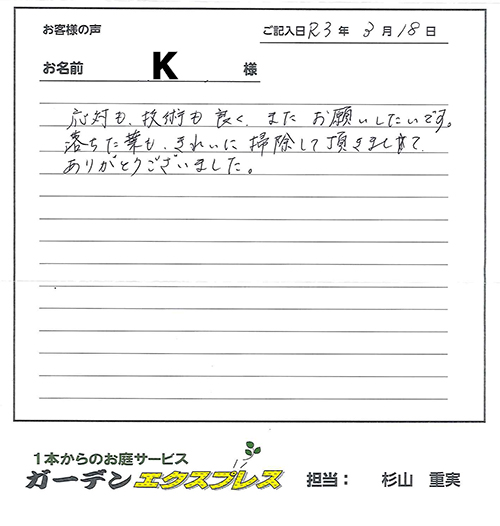 お客様の声
ご記入日 R3 年 3 月 18 日
お名前 K 様
応対も、技術も良く、またお願いしたいです。
落ちた葉も、きれいに掃除して頂きまして、
ありがとうございました。
1本からのお庭サービス
ガーデンエクスプレス 担当： 杉山 重実